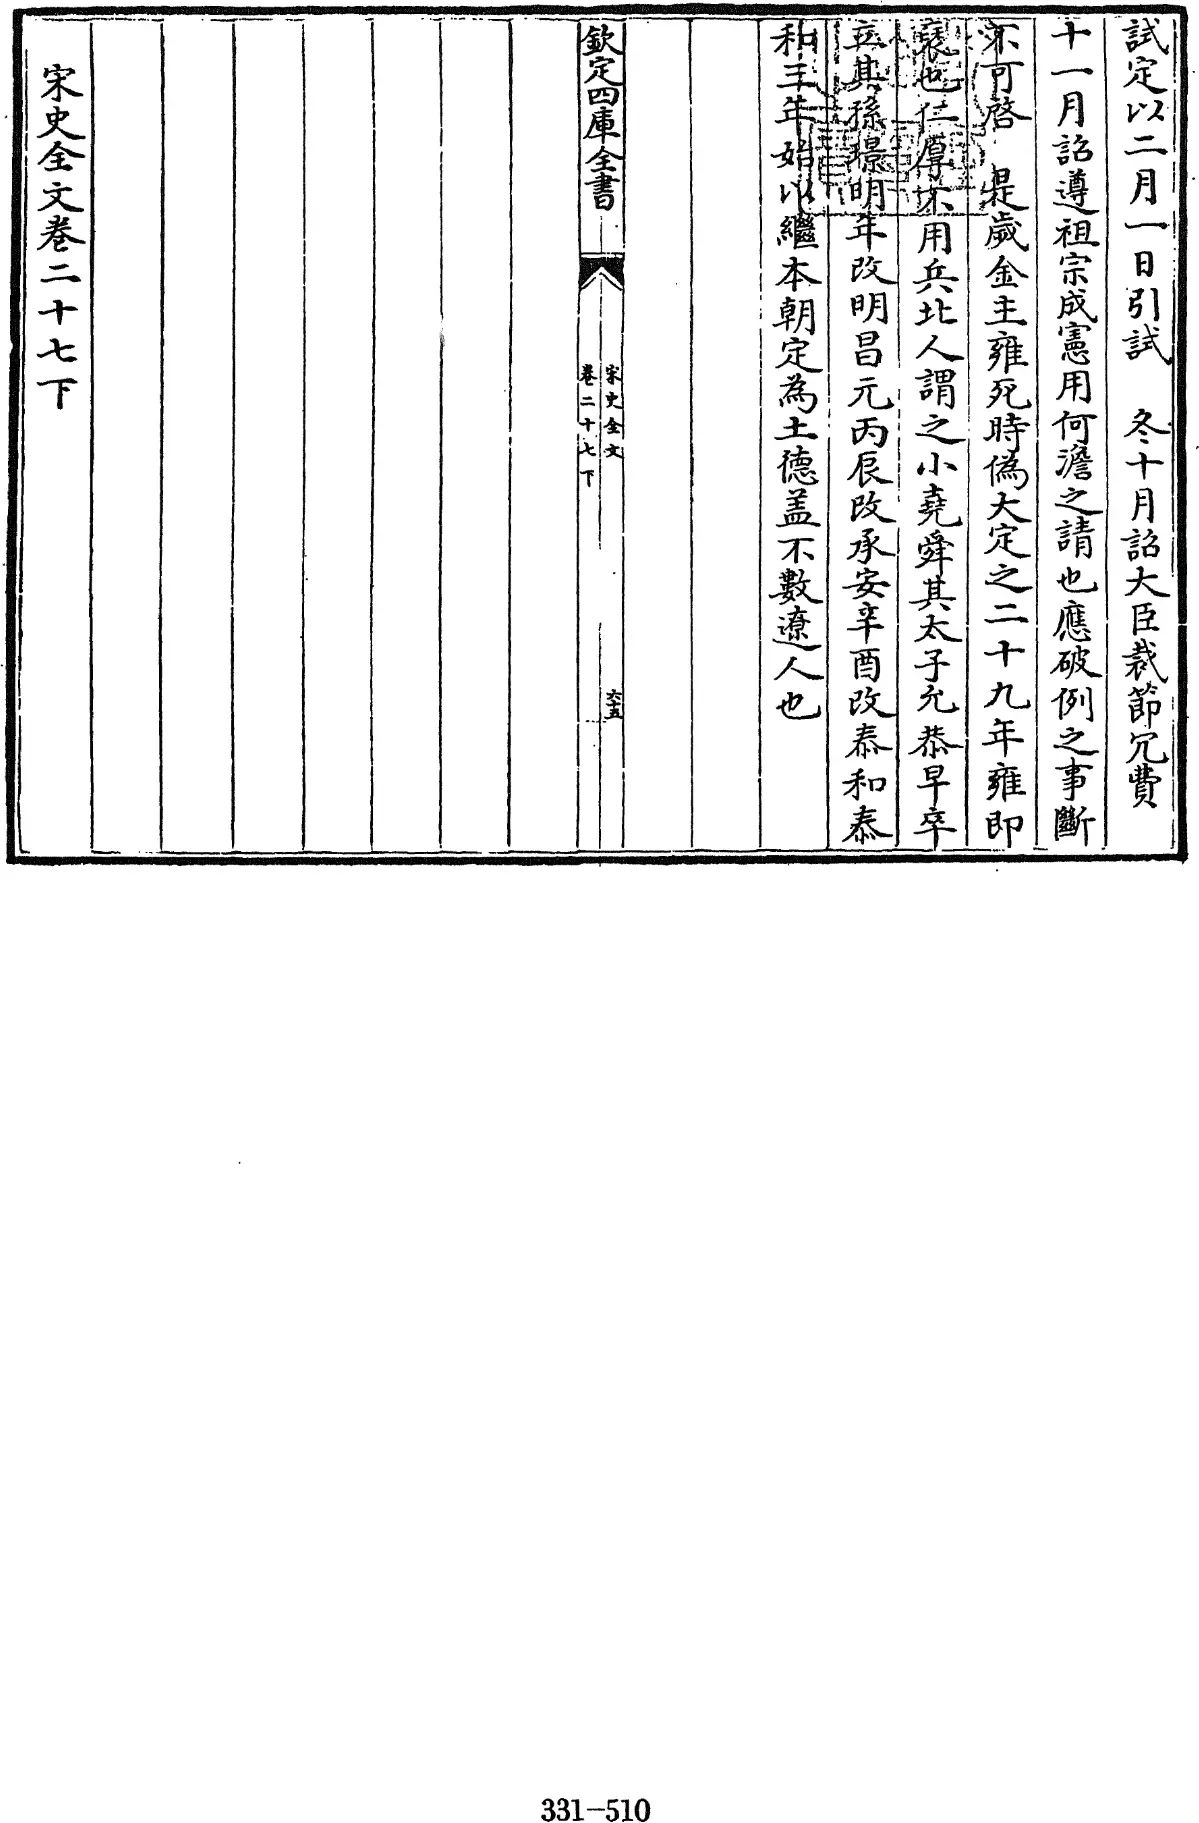 試定以二月一日引試　冬十月詔大臣裁節冗費
十一月詔遵祖宗成憲用何澹之請也應破例之事斷
不可啓　是歲金主雍死時僞大定之二十九年雍即
裒也仁厚不用兵北人謂之小堯舜其太子允恭早卒
立其孫璟明年改明昌元丙辰改承安辛酉改泰和泰
和三年始以繼本朝定為土德盖不數遼人也
欽定四庫全書
宋史全文
卷二十七下
六十五
宋史全文卷二十七下
331-510